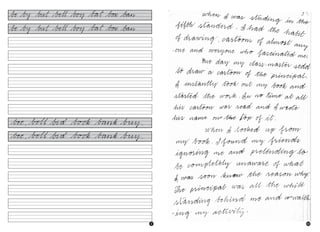 be by but bell boy bat box ban
be by but bell boy bat box ban
toe, bell, bed book, bank, buy.
toe, bell, bed book, bank, buy.
When I was studing in the
fifth standerd, I had the habit
of drawing cartoons of almost any
one and everyone who fascinated me.
One day my class master said
to draw a cartoon of the principal.
I instantly took out my book and
started the work. In no time at all
his cartoon was read and I wrote
his name on the top of it.
When I looked up from
my book, I found my friends
ignoring me and pretending to
be completely unaware of what
I was soon know the reason why
The principal was all the while
standing behind me and watch
-ing my activity.